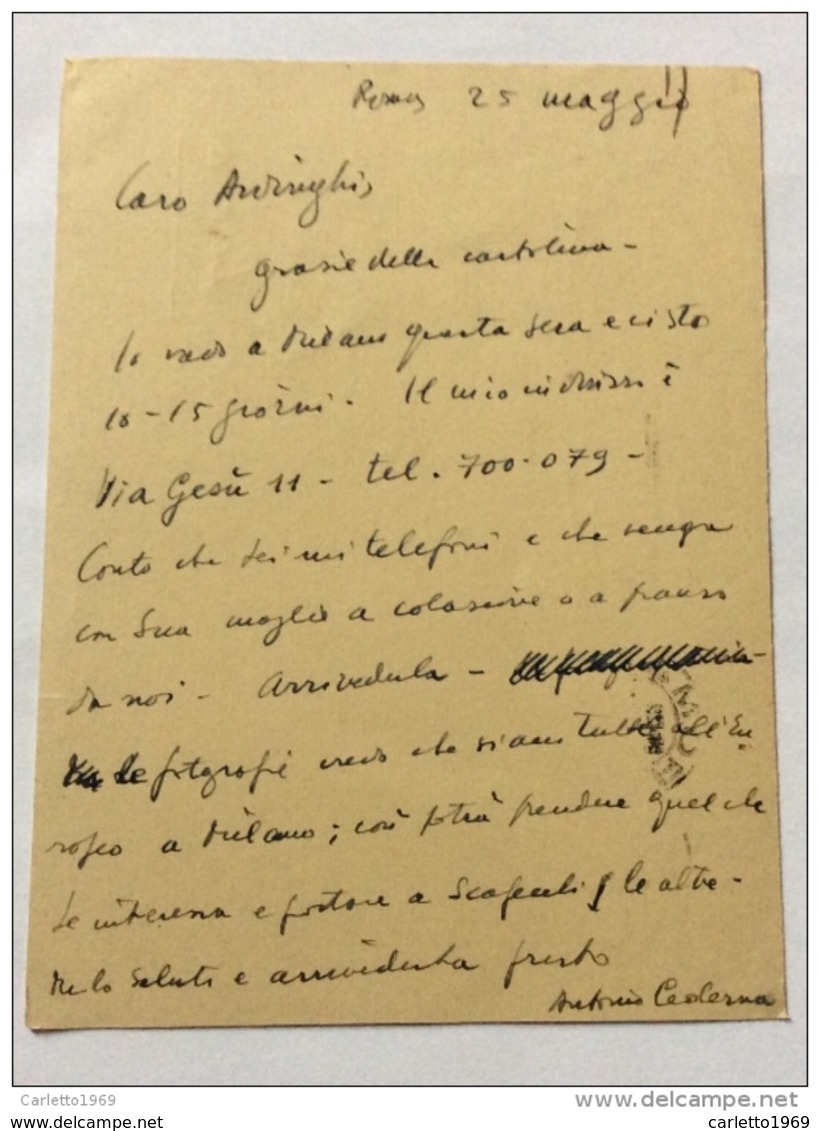 Roma 25 maggio
Caro Ardinghi,
grazie della cartolina -
Io vado a Milano questa sera e ci sto
10-15 giorni. Il mio indirizzo è
Via Gesù 11 - tel. 700.079 -
Conto che Lei mi telefoni e che venga
con Sua moglie a colazione o a pranzo
da noi - Arrivederla -
le fotografie credo che siano tutte all'Eu
ropeo a Milano; così potrà prendere quel che
Le interessa e portare a le altre -
Saluti e arrivederla presto
Antonio Cederna
Carletto1969
delcampe.net
carletto1969
carletto1969